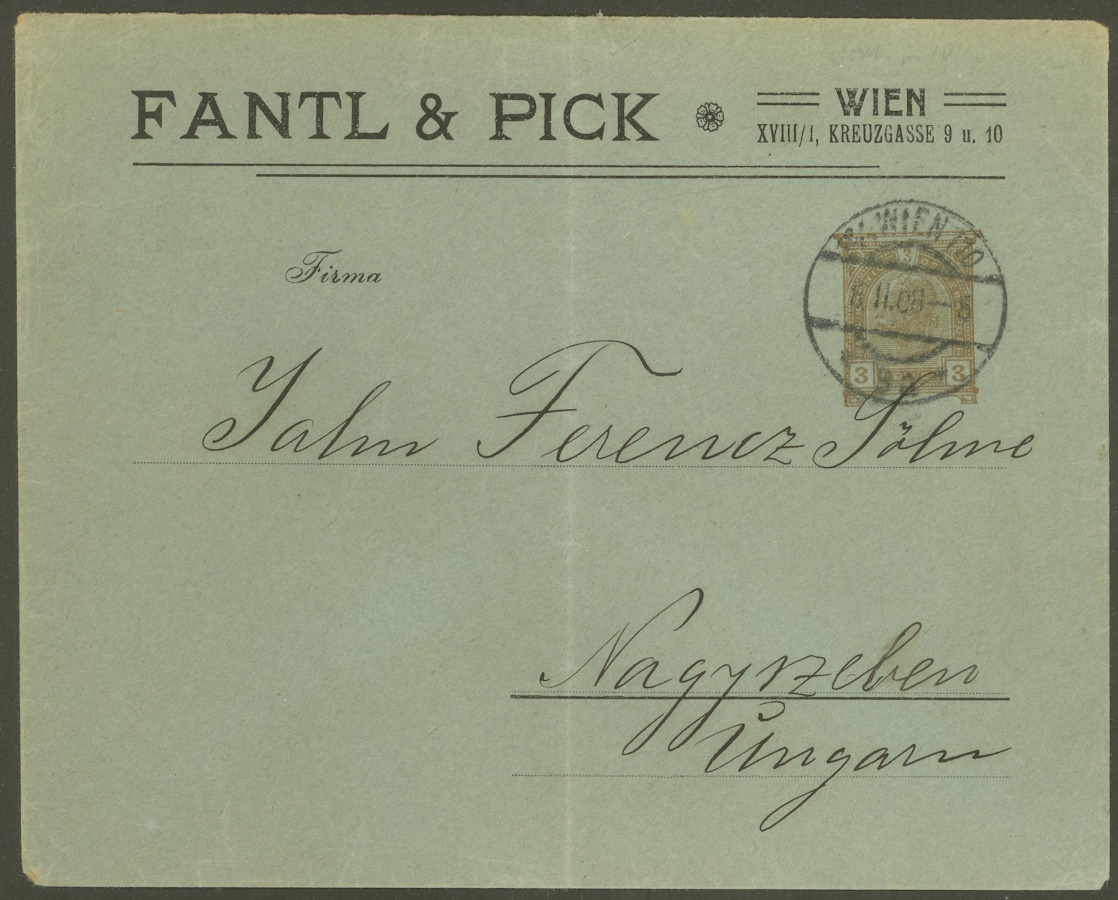 FANTL & PICK
WIEN
XVIII/1, KREUZGASSE 9 u. 10
WIEN
II.08
3
3 3
Firma
Jahn Ferencz Söhne
Nagyszeben
Ungarn